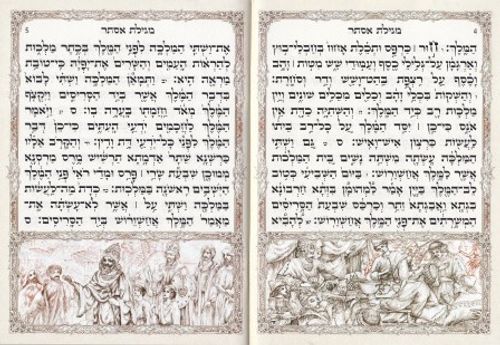 מגילת אסתר 4
הַמֶּלֶךְ: ו חוּר | כַּרְפַּס וּתְכֵלֶת אָחוּז בְּחַבְלֵי־בוּץ
וְאַרְגָּמָן עַל־גְּלִילֵי כֶסֶף וְעַמּוּדֵי שֵׁשׁ מִטּוֹת | זָהָב
וָכֶסֶף עַל רִצְפַת בַּהַט־וָשֵׁשׁ וְדַר וְסֹחָרֶת:
ז וְהַשְׁקוֹת בִּכְלֵי זָהָב וְכֵלִים מִכֵּלִים שׁוֹנִים וְיֵין
מַלְכוּת רָב כְּיַד הַמֶּלֶךְ: ח וְהַשְּׁתִיָּה כַדָּת אֵין
אֹנֵס כִּי־כֵן | יִסַּד הַמֶּלֶךְ עַל כָּל־רַב בֵּיתוֹ
לַעֲשׂוֹת כִּרְצוֹן אִישׁ־וָאִישׁ: ס ט גַּם וַשְׁתִּי
הַמַּלְכָּה עָשְׂתָה מִשְׁתֵּה נָשִׁים בֵּית הַמַּלְכוּת
אֲשֶׁר לַמֶּלֶךְ אֲחַשְׁוֵרוֹשׁ: ס י בַּיּוֹם הַשְּׁבִיעִי כְּטוֹב
לֵב־הַמֶּלֶךְ בַּיָּיִן אָמַר לִמְהוּמָן בִּזְּתָא חַרְבוֹנָא
בִּגְתָא וַאֲבַגְתָא זֵתַר וְכַרְכַּס שִׁבְעַת הַסָּרִיסִים
הַמְשָׁרְתִים אֶת־פְּנֵי הַמֶּלֶךְ אֲחַשְׁוֵרוֹשׁ: יא לְהָבִיא
מגילת אסתר 5
אֶת־וַשְׁתִּי הַמַּלְכָּה לִפְנֵי הַמֶּלֶךְ בְּכֶתֶר מַלְכוּת
לְהַרְאוֹת הָעַמִּים וְהַשָּׂרִים אֶת־יָפְיָהּ כִּי־טוֹבַת
מַרְאֶה הִיא: יב וַתְּמָאֵן הַמַּלְכָּה וַשְׁתִּי לָבוֹא
בִּדְבַר הַמֶּלֶךְ אֲשֶׁר בְּיַד הַסָּרִיסִים וַיִּקְצֹף
הַמֶּלֶךְ מְאֹד וַחֲמָתוֹ בָּעֲרָה בוֹ: ס יג וַיֹּאמֶר
הַמֶּלֶךְ לַחֲכָמִים יֹדְעֵי הָעִתִּים כִּי־כֵן דְּבַר
הַמֶּלֶךְ לִפְנֵי כָּל־יֹדְעֵי דָּת וָדִין: יד וְהַקָּרֹב אֵלָיו
כַּרְשְׁנָא שֵׁתָר אַדְמָתָא תַרְשִׁישׁ מֶרֶס מַרְסְנָא
מְמוּכָן שִׁבְעַת שָׂרֵי | פָּרַס וּמָדַי רֹאֵי פְּנֵי הַמֶּלֶךְ
הַיֹּשְׁבִים רִאשֹׁנָה בַּמַּלְכוּת: טו כְּדָת מַה־לַּעֲשׂוֹת
בַּמַּלְכָּה וַשְׁתִּי עַל | אֲשֶׁר לֹא־עָשְׂתָה אֶת־
מַאֲמַר הַמֶּלֶךְ אֲחַשְׁוֵרוֹשׁ בְּיַד הַסָּרִיסִים: ס